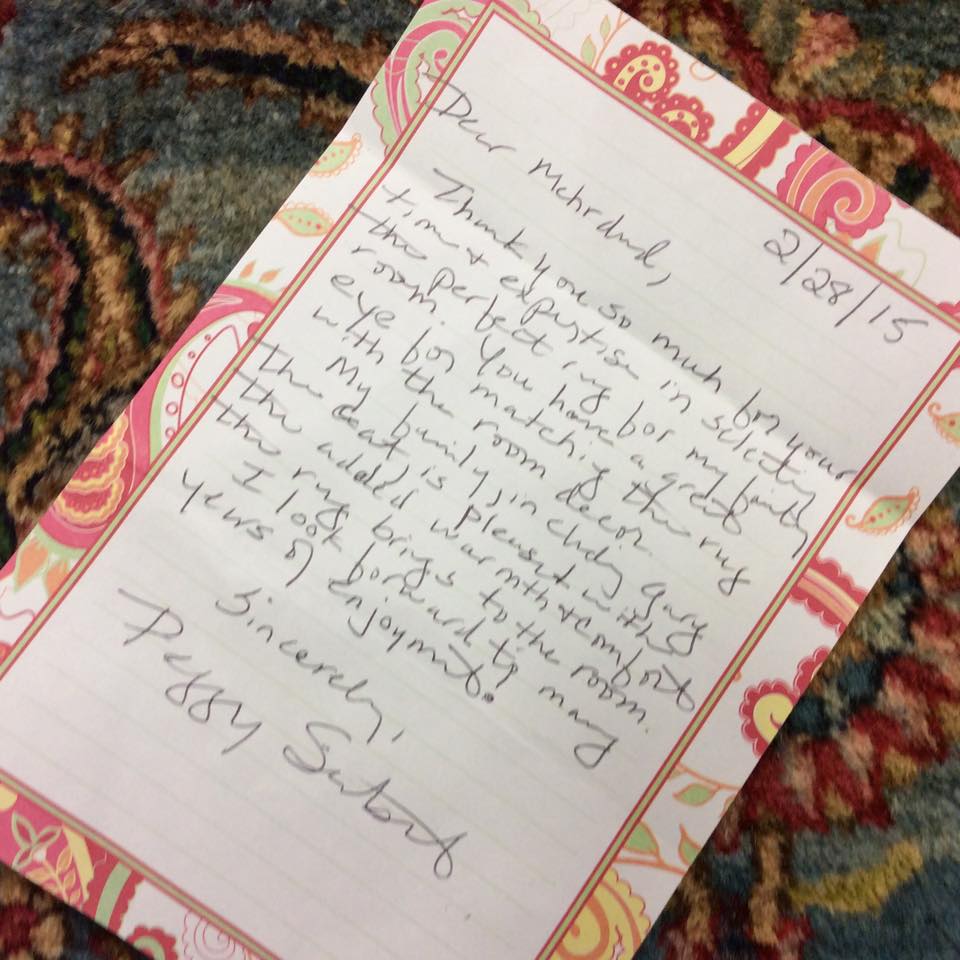 2/28/15
Dear Mehrdad,
Thank you so much for your
time & expertise in selecting
the perfect rug for my family
room. You have a great
eye for matching the rug
with the room decor.
My family, including Gary
the cat is pleased with
the added warmth & comfort
the rug brings to the room.
I look forward to many
years of enjoyment.
Sincerely,
Peggy